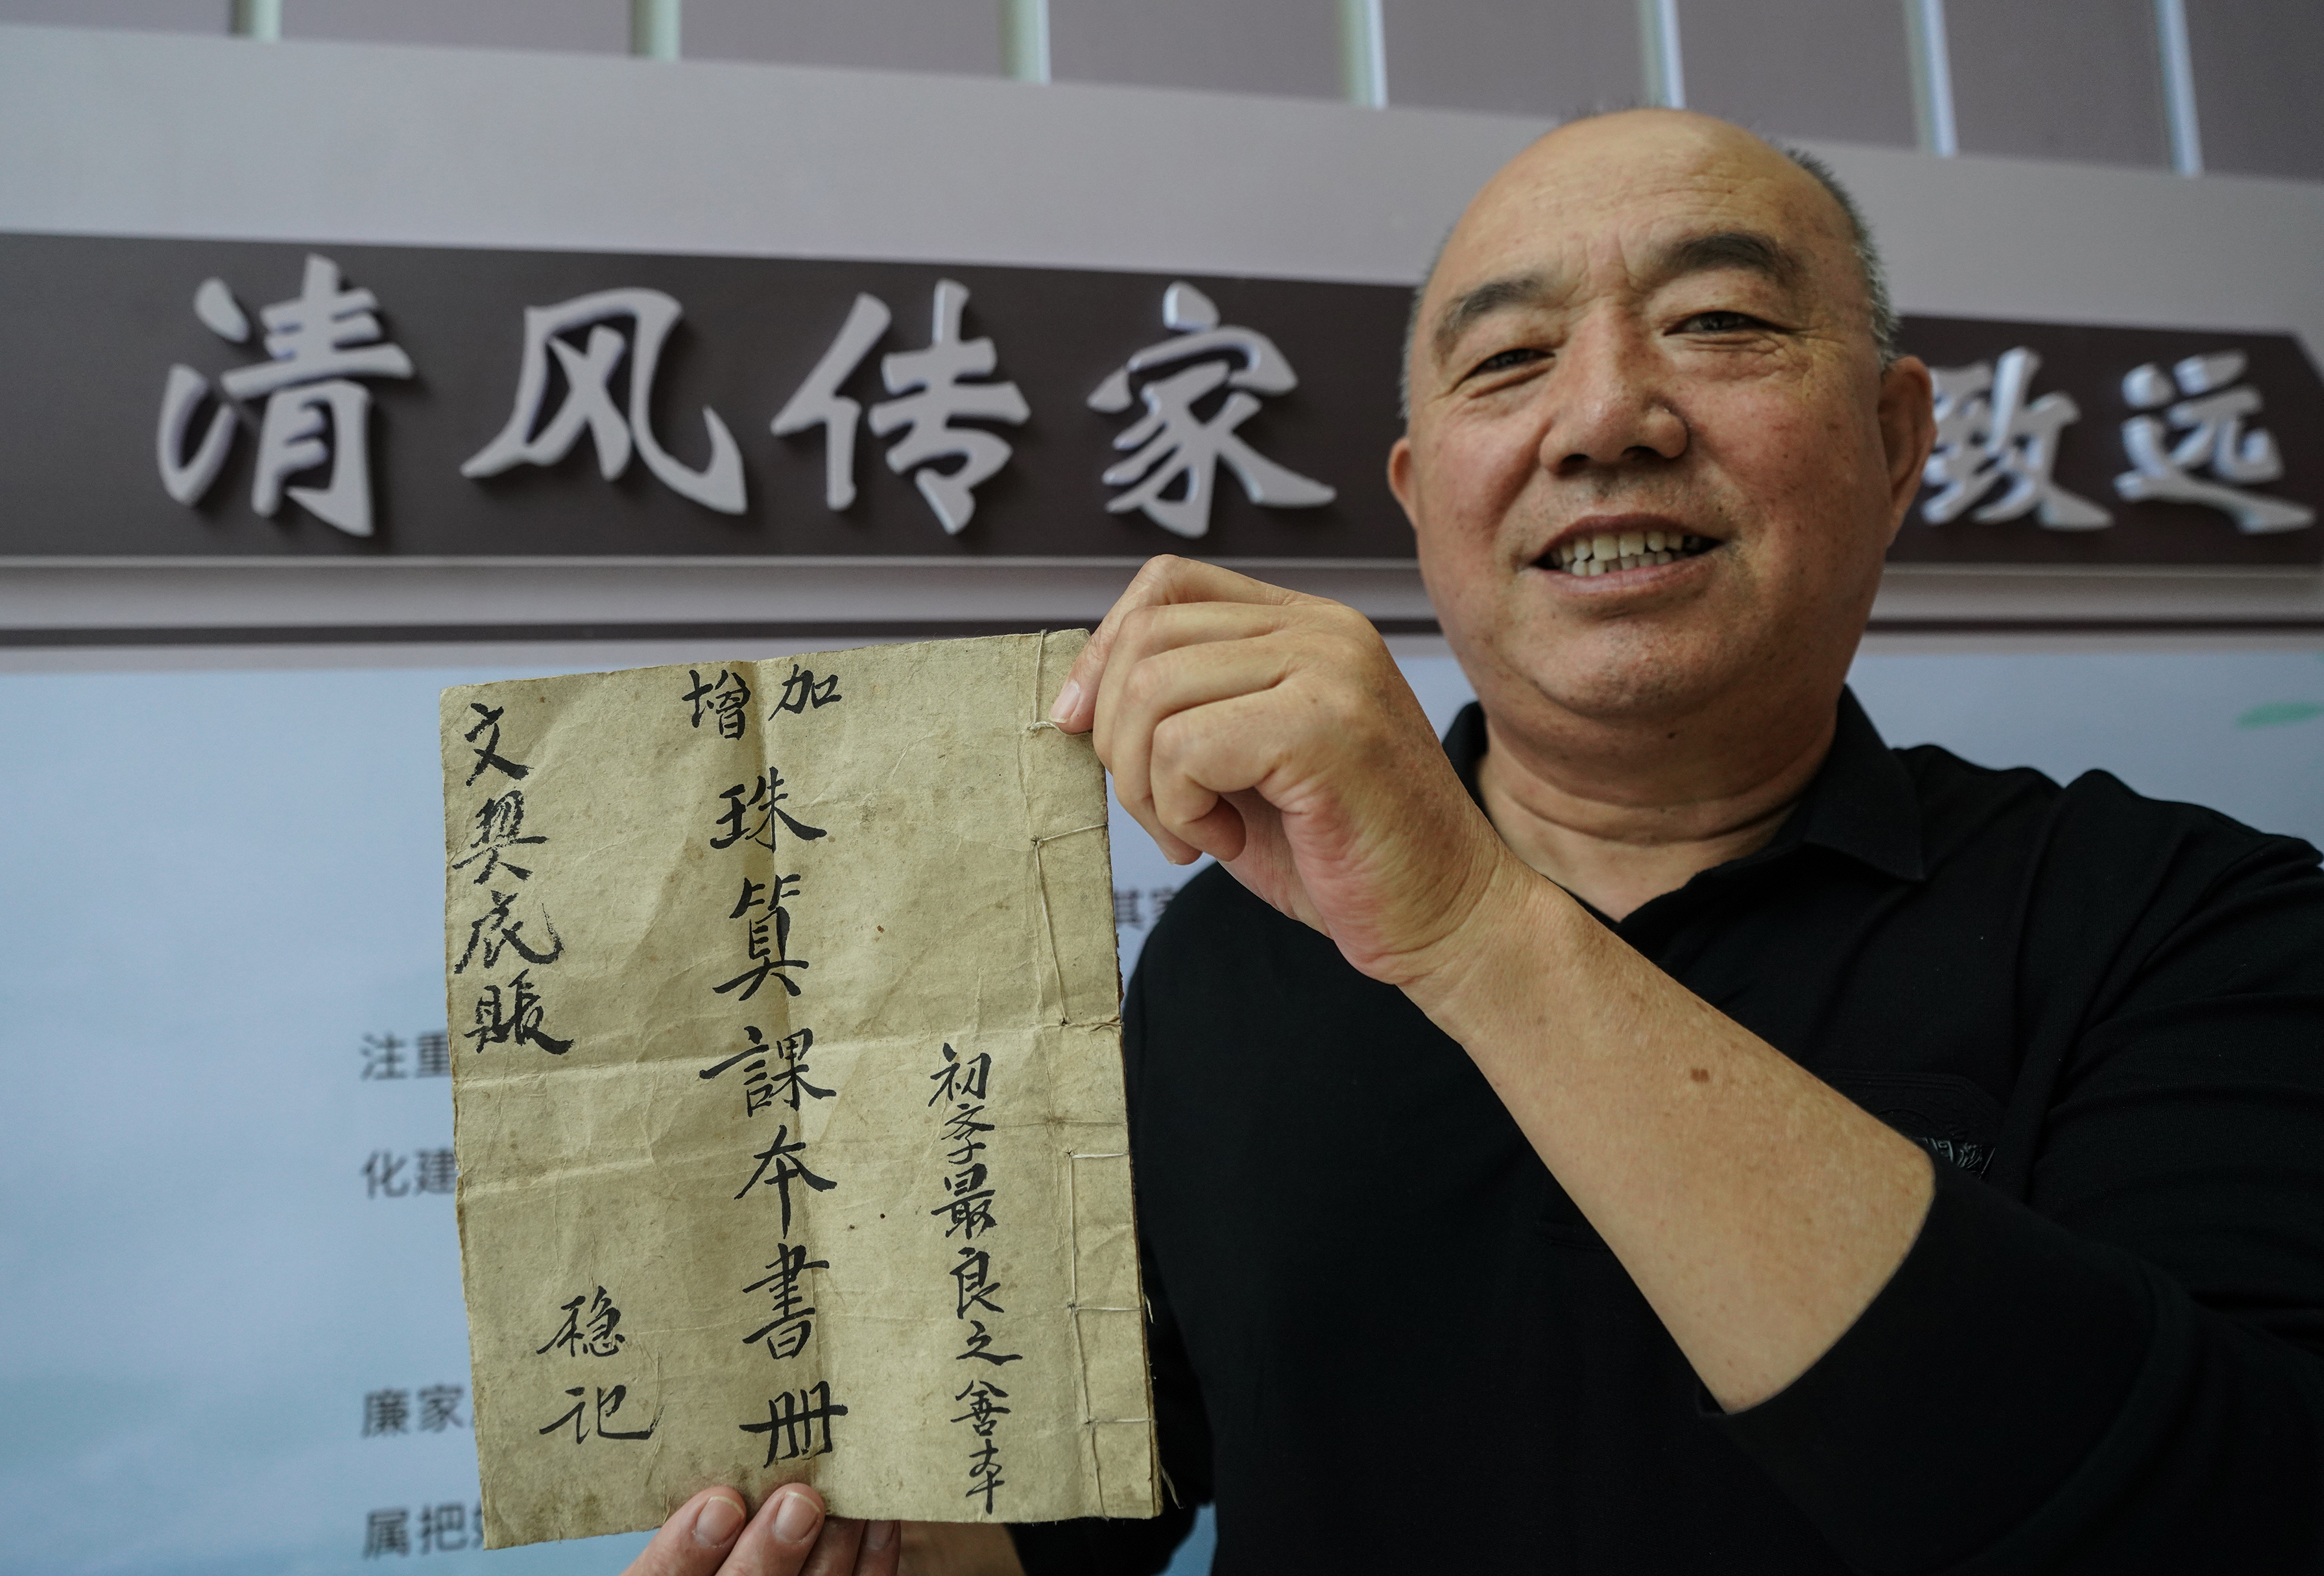 清风传家 致远
加增
珠算課本書册
初孝最良之善本
文契底賬
稳记
注重
化建
廉家
属把
其家